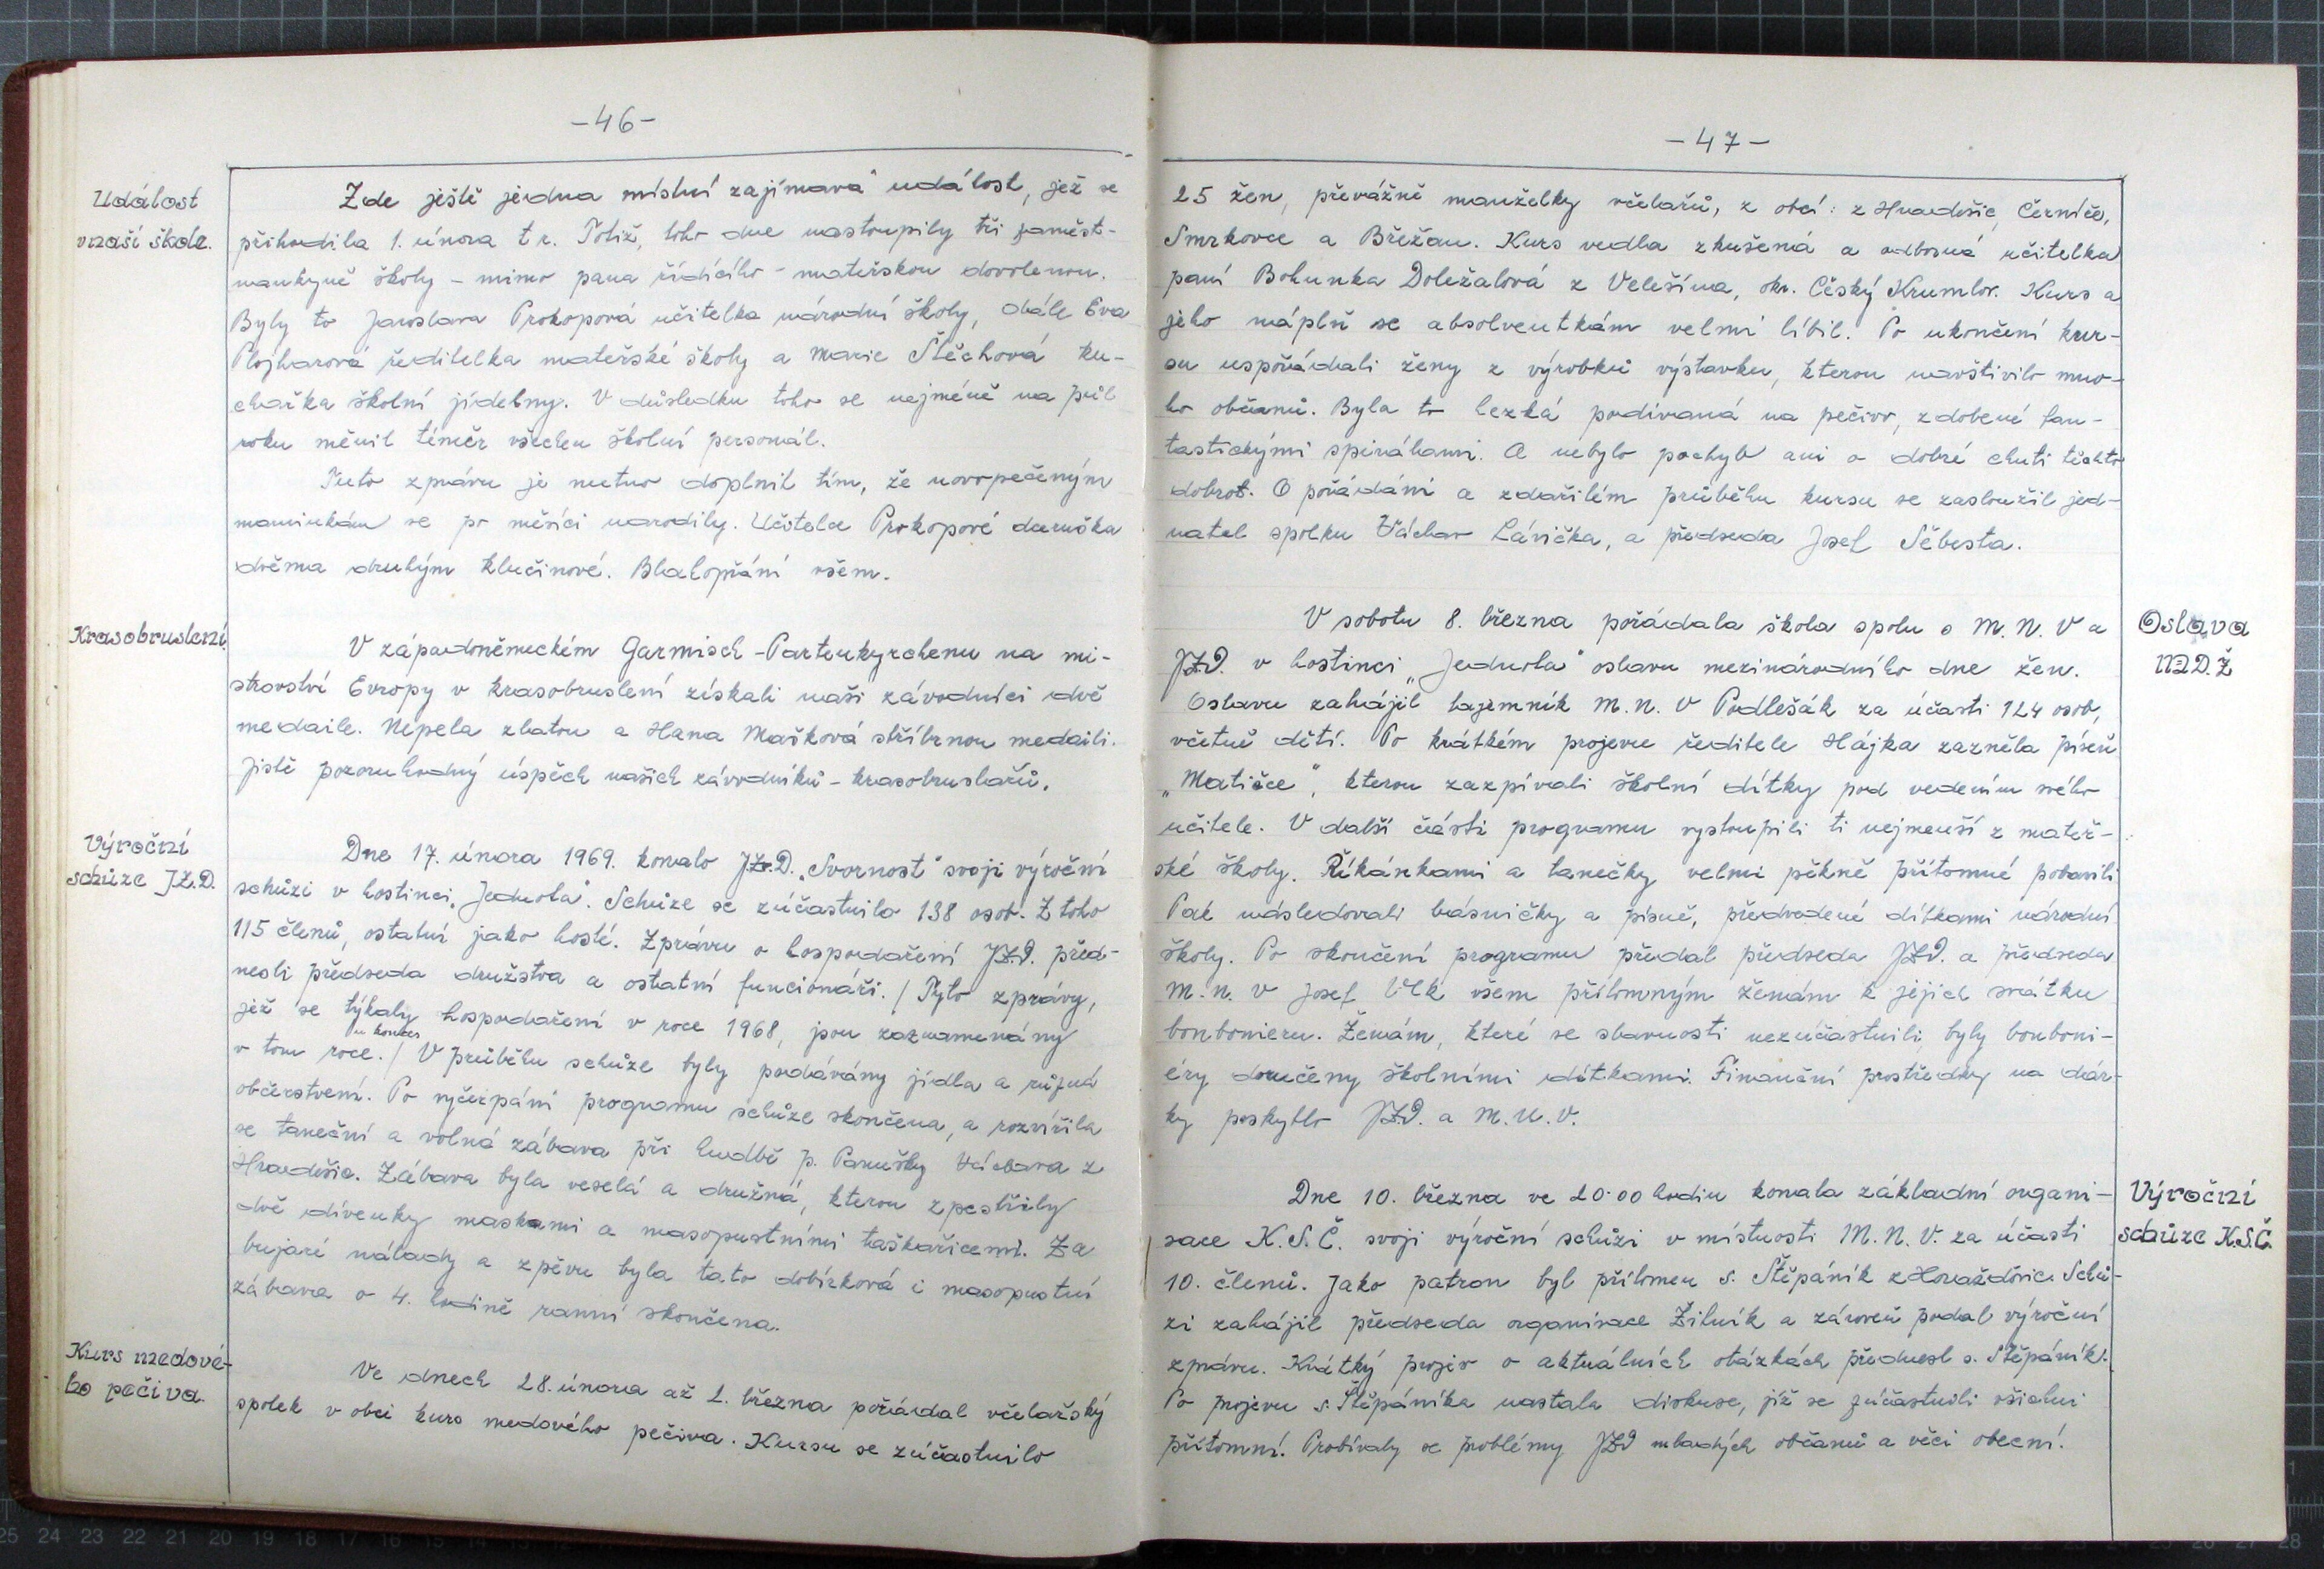 -46-
Událost
v naší škole.
Zde ještě jedna místní zajímavá událost, jež se
přihodila 1. února t.r. Totiž, toho dne nastoupily tři zaměst-
nankyně školy - mimo pana řídícího - mateřskou dovolenou.
Byly to Jaroslava Prokopová učitelka národní školy, dále Eva
Plojharová ředitelka mateřské školy a Marie Štěchová ku-
chařka školní jídelny. V důsledku toho se nejméně na půl
roku měnil téměř všechen školní personál.
Tuto zprávu je nutno doplnit tím, že novopečeným
maminkám se po měsíci narodily. Učitelce Prokopové dceruška
dvěma druhým klučinové. Blahopřání všem.
Krasobruslení
V západoněmeckém Garmisch-Partenkyrchenu na mi-
strovství Evropy v krasobruslení získali naši závodníci dvě
medaile. Nepela zlatou a Hana Mašková stříbrnou medaili.
Jistě pozoruhodný úspěch našich závodníků - krasobruslařů.
Výroční
schůze J.Z.D.
Dne 17. února 1969. konalo J.Z.D. „Svornost" svoji výroční
schůzi v hostinci „Jednota". Schůze se zúčastnilo 138 osob. Z toho
115 členů, ostatní jako hosté. Zprávu o hospodaření JZD. před-
nesli předseda družstva a ostatní funcionáři. / Tyto zprávy,
jež se týkaly hospodaření v roce 1968, jsou zaznamenány
u konce
v tom roce. / V průběhu schůze byly podávány jídla a různá
občerstvení. Po vyčerpání programu schůze skončena, a rozvířila
se taneční a volná zábava při hudbě p. Panušky Václava z
Hradešic. Zábava byla veselá a družná, kterou zpestřily
dvě dívenky maskami a masopustními taškařicemi. Za
bujaré nálady a zpěvu byla tato dobírková i masopustní
zábava o 4. hodině ranní skončena.
Kurs medové-
ho pečiva.
Ve dnech 28. února až 2. března pořádal včelařský
spolek v obci kurs medového pečiva. Kursu se zúčastnilo
-47-
25 žen, převážně manželky včelařů, z obcí: z Hradešic, Černíče,
Smrkovce a Břežan. Kurs vedla zkušená a odborná učitelka
paní Bohunka Doležalová z Velešína, okr. Český Krumlov. Kurs a
jeho náplň se absolventkám velmi líbil. Po ukončení kur-
su uspořádali ženy z výrobků výstavku, kterou navštívilo mno-
ho občanů. Byla to hezká podívaná na pečivo, zdobené fan-
tastickými spirálami. A nebylo pochyb ani o dobré chuti těchto
dobrot. O pořádání a zdařilém průběhu kursu se zasloužil jed-
natel spolku Václav Lávička, a předseda Josef Šebesta.
Oslava
M.D.Ž
V sobotu 8. března pořádala škola spolu s M.N.V a
JZD. v hostinci „Jednota" oslavu mezinárodního dne žen.
Oslavu zahájil tajemník M.N.V Podlešák za účasti 124 osob,
včetně dětí. Po krátkém projevu ředitele Hájka zazněla píseň
„Matičce", kterou zazpívali školní dítky pod vedením svého
učitele. V další části programu vystoupili ti nejmenší z mateř-
ské školy. Říkánkami a tanečky velmi pěkně přítomné pobavili
Pak následovali básničky a písně, předvedené dítkami národní
školy. Po skončení programu předal předseda JZD. a předseda
M.N.V Josef Vlk všem přítomným ženám k jejich svátku
bonbonieru. Ženám, které se slavnosti nezúčastnili, byly bonboni-
éry doručeny školními dítkami. Finanční prostředky na dár-
ky poskytlo JZD. a M.N.V.
Výroční
schůze K.S.Č.
Dne 10. března ve 20.00 hodin konala základní organi-
sace K.S.Č. svoji výroční schůzi v místnosti M.N.V. za účasti
10. členů. Jako patron byl přítomen s. Štěpáník z Horažďovic. Schů-
zi zahájil předseda organisace Žilník a zároveň podal výroční
zprávu. Krátký projev o aktuálních otázkách přednesl s. Štěpáník.
Po projevu s. Štěpáníka nastala diskuse, jíž se zúčastnili všichni
přítomní. Probíraly se problémy JZD mladých občanů a věci obecní.